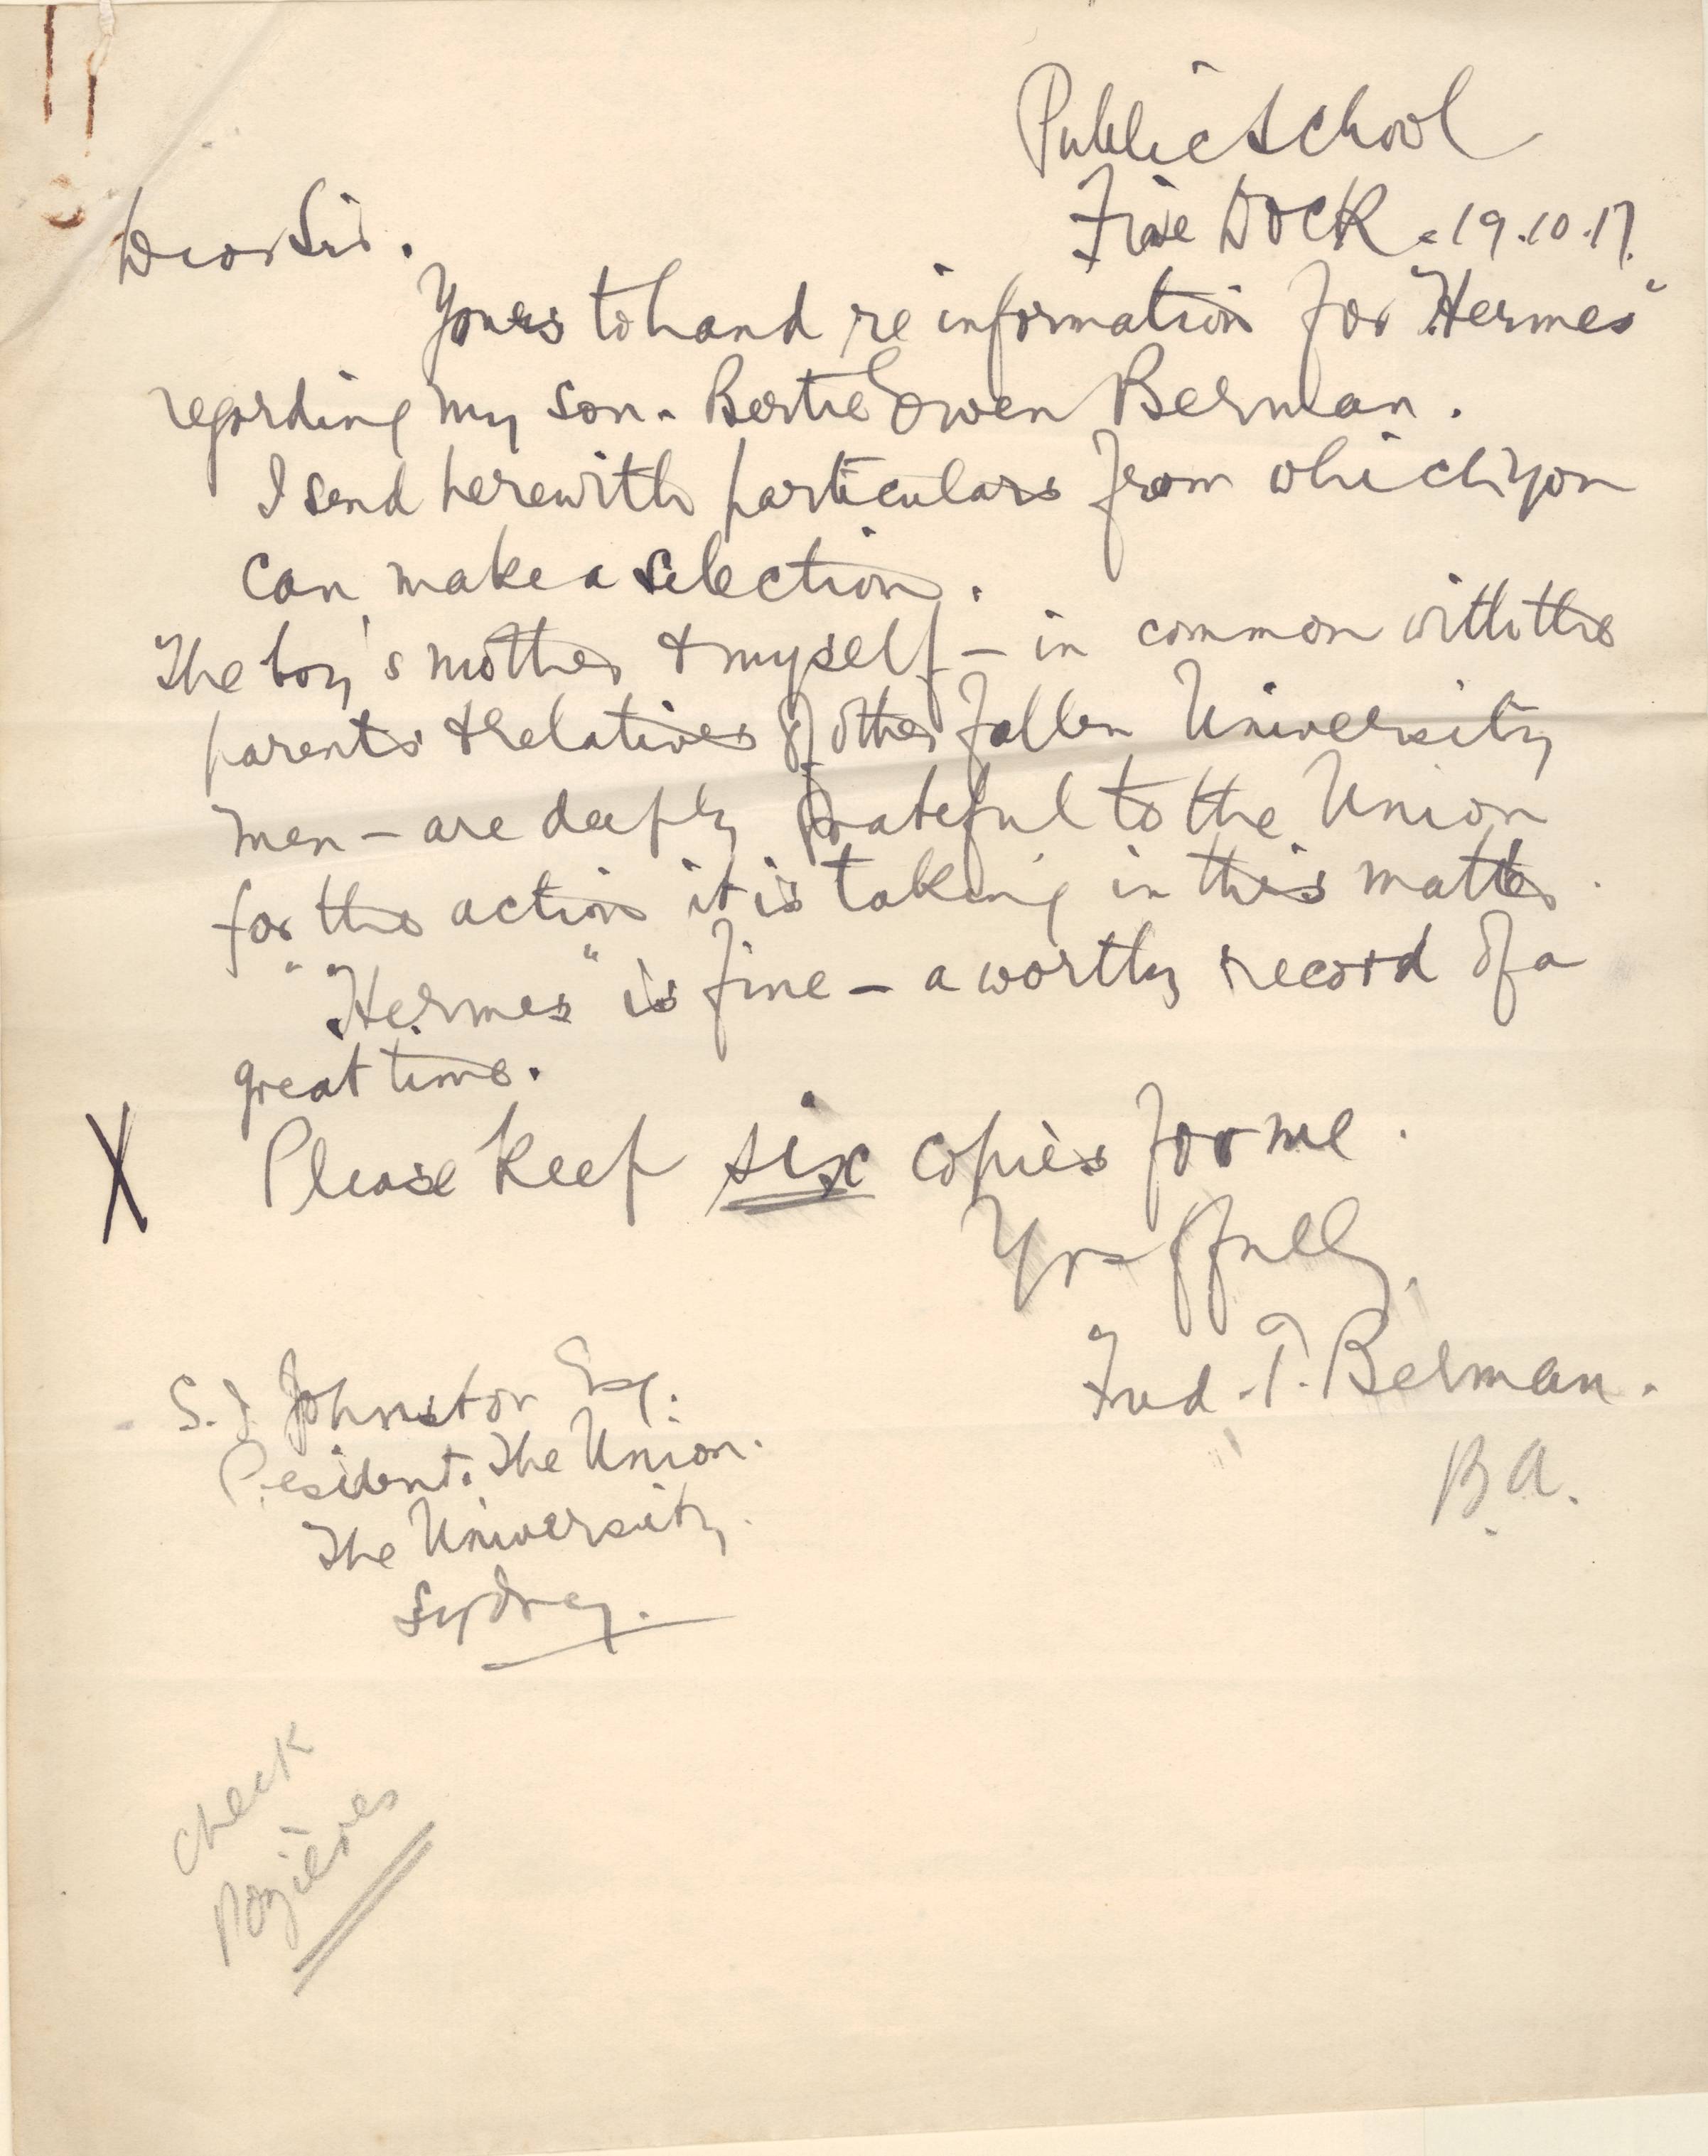 Public School
Five Dock. 19.10.17.
Dear Sir.
Yours to hand re information for "Hermes"
regarding my son. Bertie Owen Berman.
I send herewith particulars from which you
can make a selection.
The boy's mother & myself – in common with the
parents & relatives of other fallen University
men – are deeply grateful to the Union
for the action it is taking in this matter.
"Hermes" is fine – a worthy record of a
great time.
X Please keep six copies for me.
Yrs ffully,
Fred. T. Berman.
B.A.
S. J Johnston Esq.
President. The Union.
The University.
Sydney.
Check
Pozières